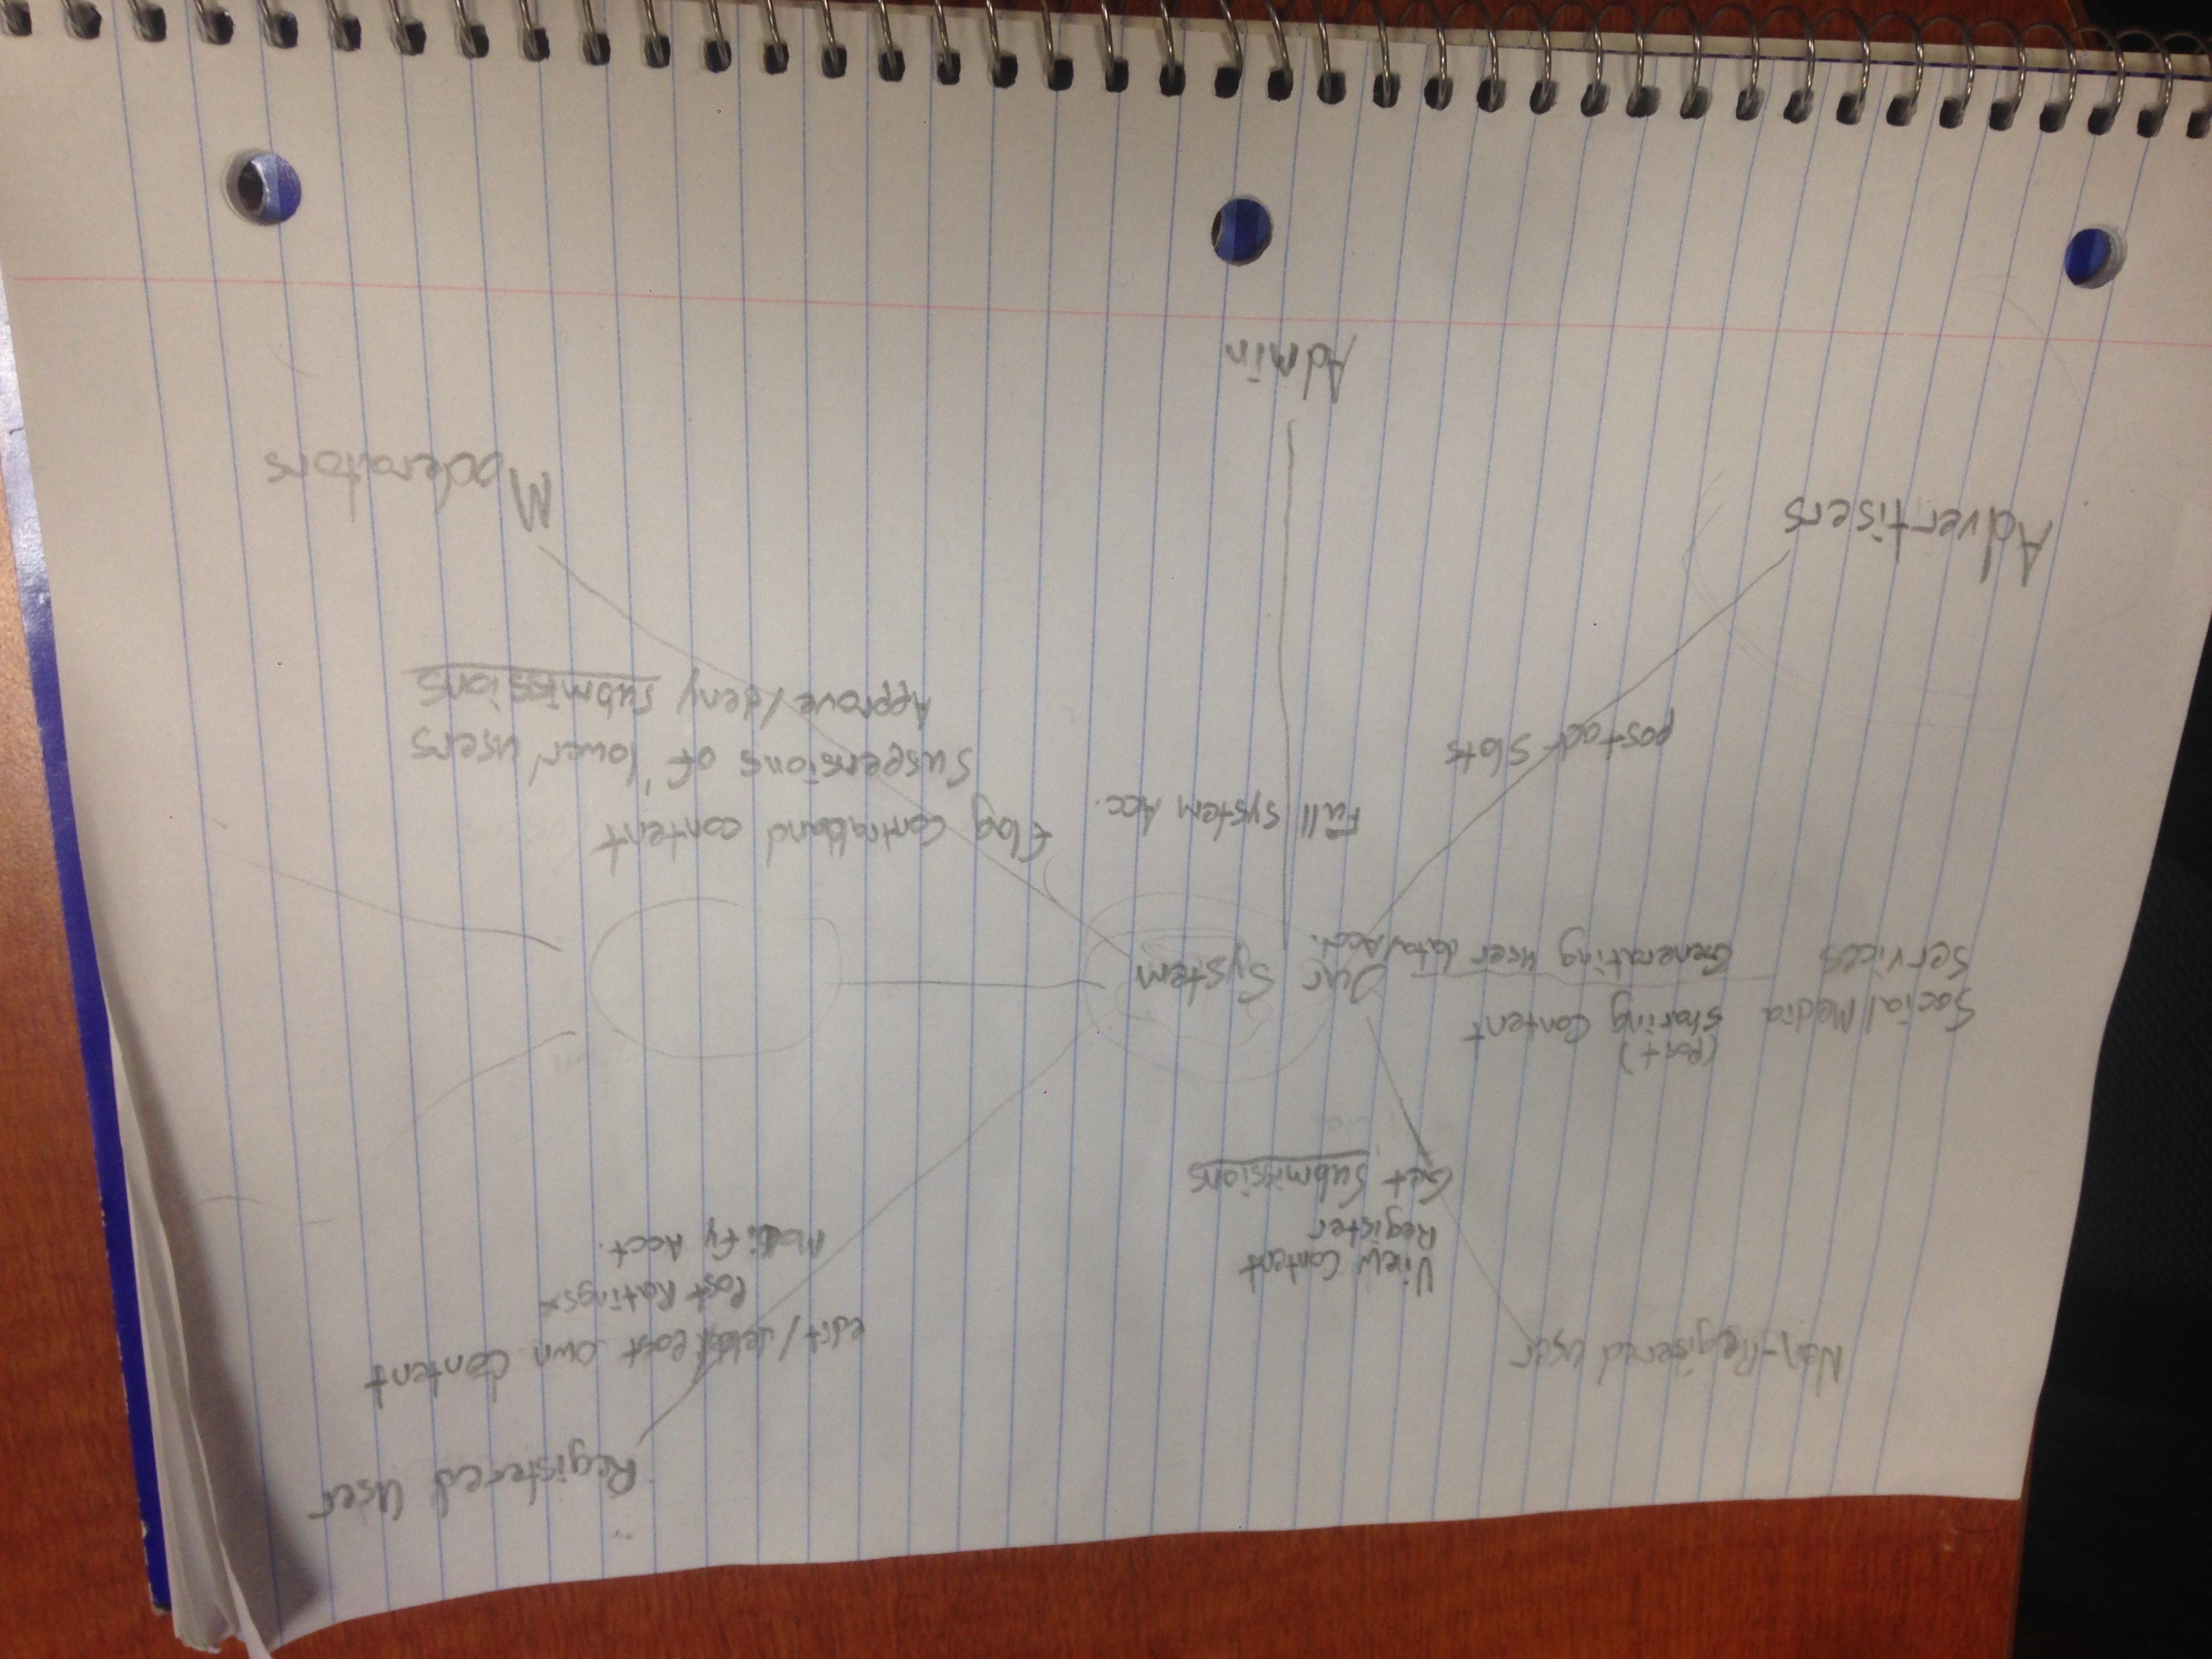 Registered User
Non-Registered user
edit/ Post own Content
Post Ratings*
Modify Acct.
View Content
Register
Get Submissions
(Post)
Social Media
Sharing Content
Services
Generating user data/Acct.
Our System
Full system Acc.
flag contraband content
Suspensions of 'lower' users
Approve/deny submissions
post ad slots
Advertisers
Moderators
Admin